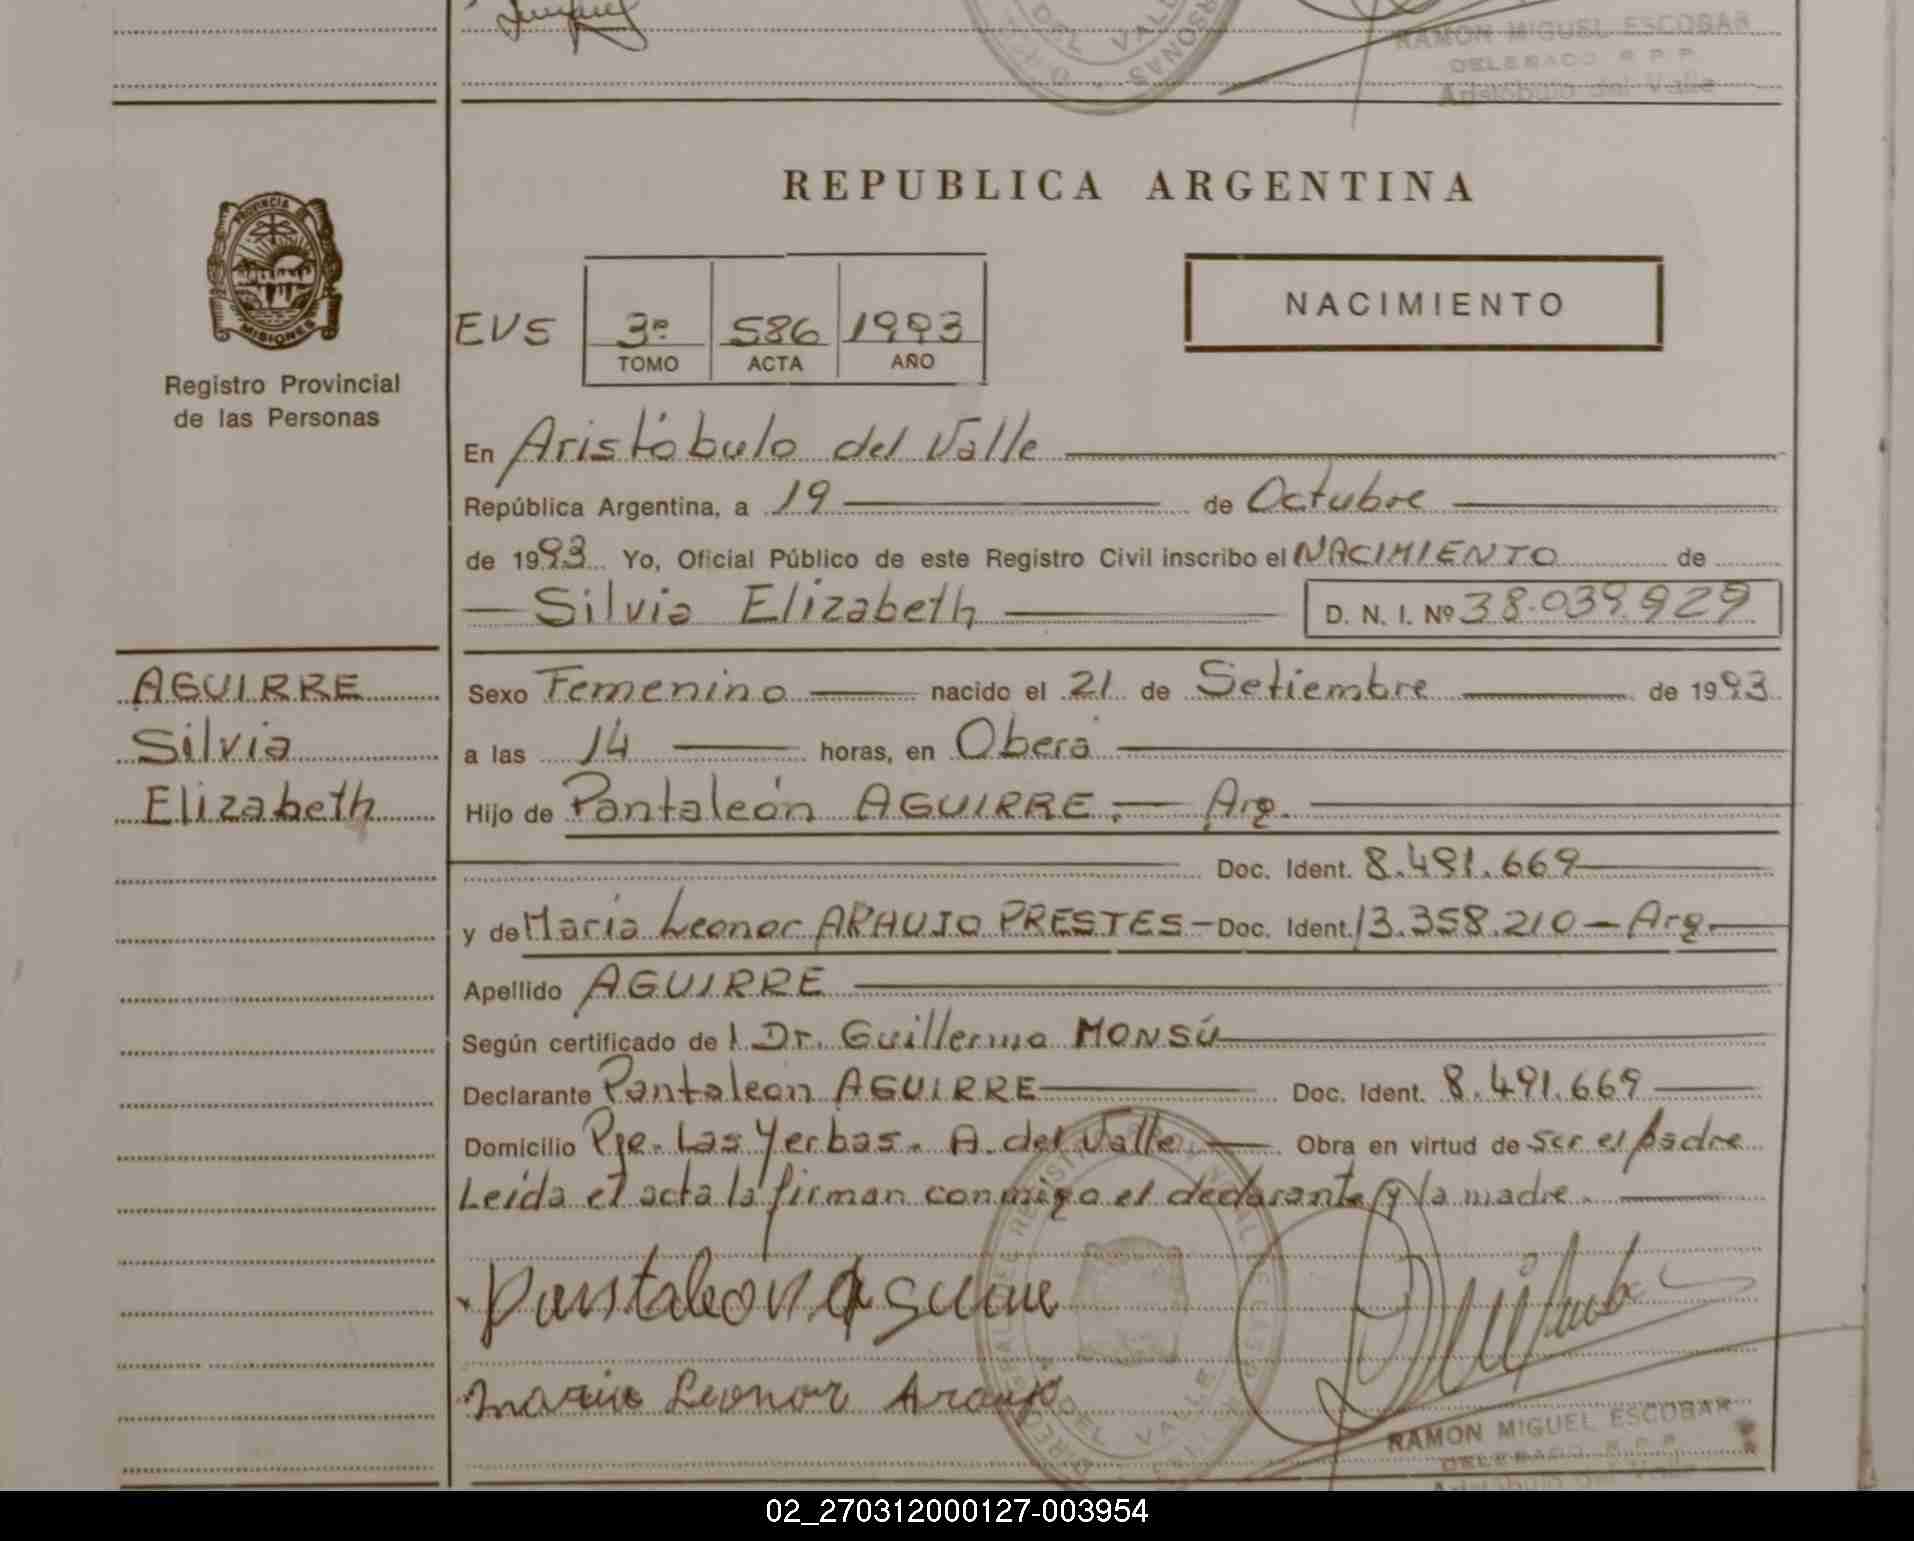 DEL VALLE
RAMON MIGUEL ESCOBAR
DELEGADO R.P.P.
Aristóbulo del Valle
PROVINCIA DE
MISIONES
Registro Provincial
de las Personas
REPUBLICA ARGENTINA
EVS 3º 586 1993
TOMO ACTA AÑO
NACIMIENTO
En Aristóbulo del Valle
República Argentina, a 19 de Octubre
de 1993 Yo, Oficial Público de este Registro Civil inscribo el NACIMIENTO de
Silvia Elizabeth D. N. I. Nº 38.039.929
AGUIRRE
Silvia
Elizabeth
Sexo Femenino nacido el 21 de Setiembre de 1993
a las 14 horas, en Oberá
Hijo de Pantaleón AGUIRRE.— Arg.
Doc. Ident. 8.491.669
y de María Leonor ARAUJO PRESTES - Doc. Ident. 13.358.210 — Arg.
Apellido AGUIRRE
Según certificado de l Dr. Guillermo MONSÚ
Declarante Pantaleón AGUIRRE Doc. Ident. 8.491.669
Domicilio Pje. Las Yerbas. A. del Valle Obra en virtud de ser el padre
Leída el acta la firman conmigo el declarante y la madre.
Pantaleon Aguirre
Maria Leonor Araujo
DEL VALLE
RAMON MIGUEL ESCOBAR
DELEGADO R.P.P.
Aristóbulo del Valle
02_270312000127-003954